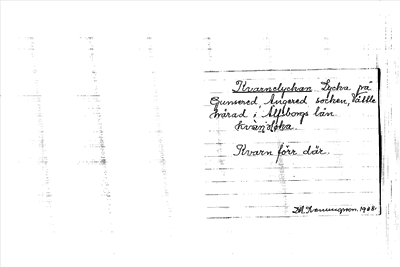 Kvarnelyckan Lycka på
Gunnered, Angered socken, Vättle
härad i Älfsborgs län.
Kvarn förr där.
1908.